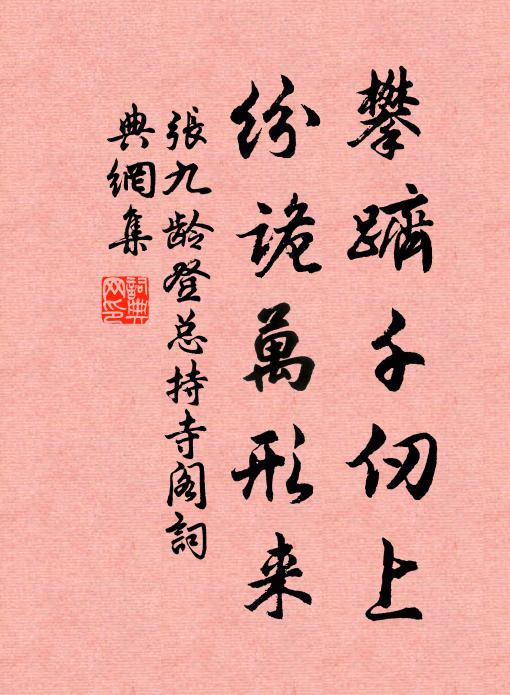 攀躋千仞上
紛詭萬形来
張九齡登总持寺阁詞
典網集
詞典
网印